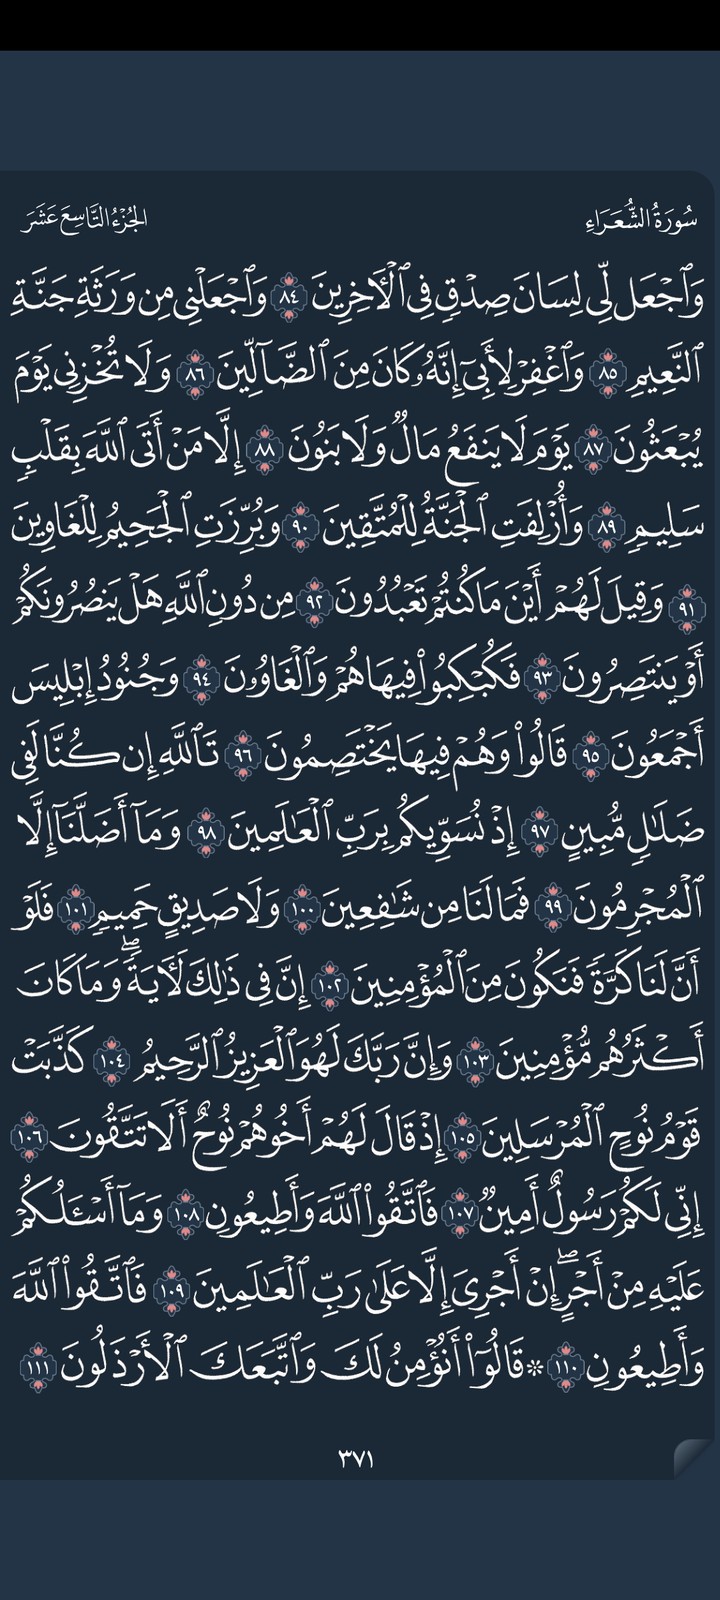 سُورَةُ الشُّعَرَاءِ الجُزْءُ التَّاسِعَ عَشَرَ
وَٱجْعَل لِّى لِسَانَ صِدْقٍ فِى ٱلْـَٔاخِرِينَ ٨٤ وَٱجْعَلْنِى مِن وَرَثَةِ جَنَّةِ
ٱلنَّعِيمِ ٨٥ وَٱغْفِرْ لِأَبِىٓ إِنَّهُۥ كَانَ مِنَ ٱلضَّآلِّينَ ٨٦ وَلَا تُخْزِنِى يَوْمَ
يُبْعَثُونَ ٨٧ يَوْمَ لَا يَنفَعُ مَالٌ وَلَا بَنُونَ ٨٨ إِلَّا مَنْ أَتَى ٱللَّهَ بِقَلْبٍ
سَلِيمٍ ٨٩ وَأُزْلِفَتِ ٱلْجَنَّةُ لِلْمُتَّقِينَ ٩٠ وَبُرِّزَتِ ٱلْجَحِيمُ لِلْغَاوِينَ
٩١ وَقِيلَ لَهُمْ أَيْنَ مَا كُنتُمْ تَعْبُدُونَ ٩٢ مِن دُونِ ٱللَّهِ هَلْ يَنصُرُونَكُمْ
أَوْ يَنتَصِرُونَ ٩٣ فَكُبْكِبُوا۟ فِيهَا هُمْ وَٱلْغَاوُۥنَ ٩٤ وَجُنُودُ إِبْلِيسَ
أَجْمَعُونَ ٩٥ قَالُوا۟ وَهُمْ فِيهَا يَخْتَصِمُونَ ٩٦ تَٱللَّهِ إِن كُنَّا لَفِى
ضَلَـٰلٍ مُّبِينٍ ٩٧ إِذْ نُسَوِّيكُم بِرَبِّ ٱلْعَـٰلَمِينَ ٩٨ وَمَآ أَضَلَّنَآ إِلَّا
ٱلْمُجْرِمُونَ ٩٩ فَمَا لَنَا مِن شَـٰفِعِينَ ١٠٠ وَلَا صَدِيقٍ حَمِيمٍ ١٠١ فَلَوْ
أَنَّ لَنَا كَرَّةً فَنَكُونَ مِنَ ٱلْمُؤْمِنِينَ ١٠٢ إِنَّ فِى ذَٰلِكَ لَـَٔايَةً ۖ وَمَا كَانَ
أَكْثَرُهُم مُّؤْمِنِينَ ١٠٣ وَإِنَّ رَبَّكَ لَهُوَ ٱلْعَزِيزُ ٱلرَّحِيمُ ١٠٤ كَذَّبَتْ
قَوْمُ نُوحٍ ٱلْمُرْسَلِينَ ١٠٥ إِذْ قَالَ لَهُمْ أَخُوهُمْ نُوحٌ أَلَا تَتَّقُونَ ١٠٦
إِنِّى لَكُمْ رَسُولٌ أَمِينٌ ١٠٧ فَٱتَّقُوا۟ ٱللَّهَ وَأَطِيعُونِ ١٠٨ وَمَآ أَسْـَٔلُكُمْ
عَلَيْهِ مِنْ أَجْرٍ ۖ إِنْ أَجْرِىَ إِلَّا عَلَىٰ رَبِّ ٱلْعَـٰلَمِينَ ١٠٩ فَٱتَّقُوا۟ ٱللَّهَ
وَأَطِيعُونِ ١١٠ ۞ قَالُوٓا۟ أَنُؤْمِنُ لَكَ وَٱتَّبَعَكَ ٱلْأَرْذَلُونَ ١١١
٣٧١